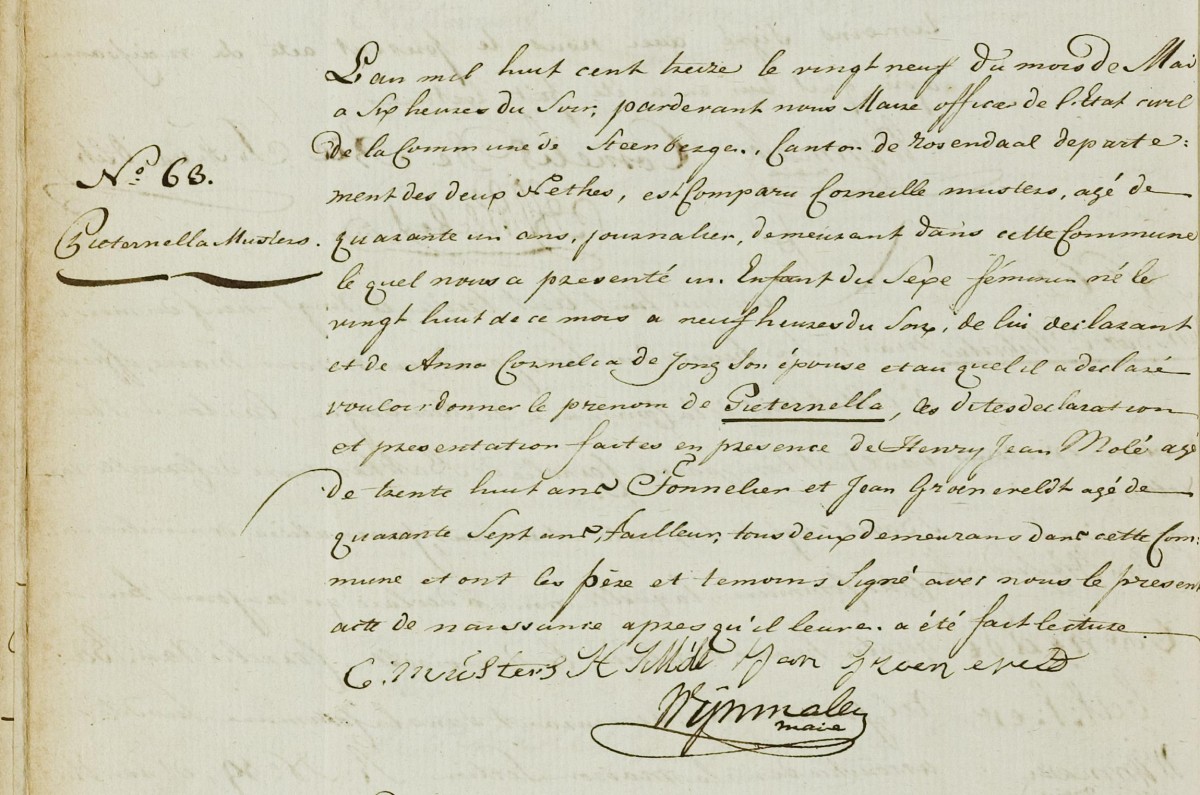 N.º 63.
Pieternella Musters.
L'an mil huit cent treize le vingt neuf du mois de Mai
a Six heures du Soir, pardevant nous Maire officer de l'Etat civil
de la Commune de Steenbergen, Canton de Rosendaal departe:
ment des deux Nethes, est Comparu Corneille musters, agé de
quarante un ans, journalier, demeurant dans cette Commune
le quel nous a presenté un Enfant du Sexe féminin né le
vingt huit de ce mois a neuf heures du Soir, de lui declarant
et de Anna Cornelia de Jong Son épouse et au quel il a declaré
vouloir donner le prenom de Pieternella, les dites declaration
et presentation faites en presence de Henry Jean Molé agé
de trente huit ans Tonnelier et Jean Groeneveldt agé de
quarante Sept ans, Tailleur, tous deux demeurans dans cette Com:
mune et ont les père et temoins Signé avec nous le present
acte de naissance apres qu'il leure a été fait lecture
C. Musters H J Molé Jan Groeneveld
Wijnmalen
maire